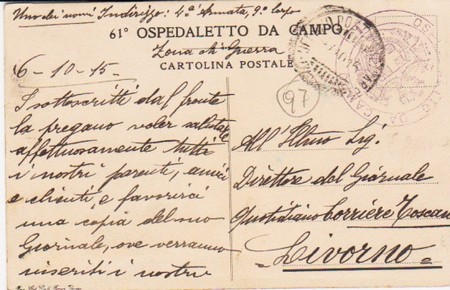 Uno dei nomi Indirizzo: 4ª Armata, 9º Corpo
61° OSPEDALETTO DA CAMPO
Zona di Guerra
CARTOLINA POSTALE
6-10-15-
97
I sottoscritti dal fronte
la pregano voler salutare
affettuosamente tutti
i nostri parenti, amici
e clienti, e favorirci
una copia del suo
Giornale, ove verranno
inseriti i nostri
All' Illmo Sig.
Direttore del Giornale
Quotidiano Corriere Toscano
Livorno